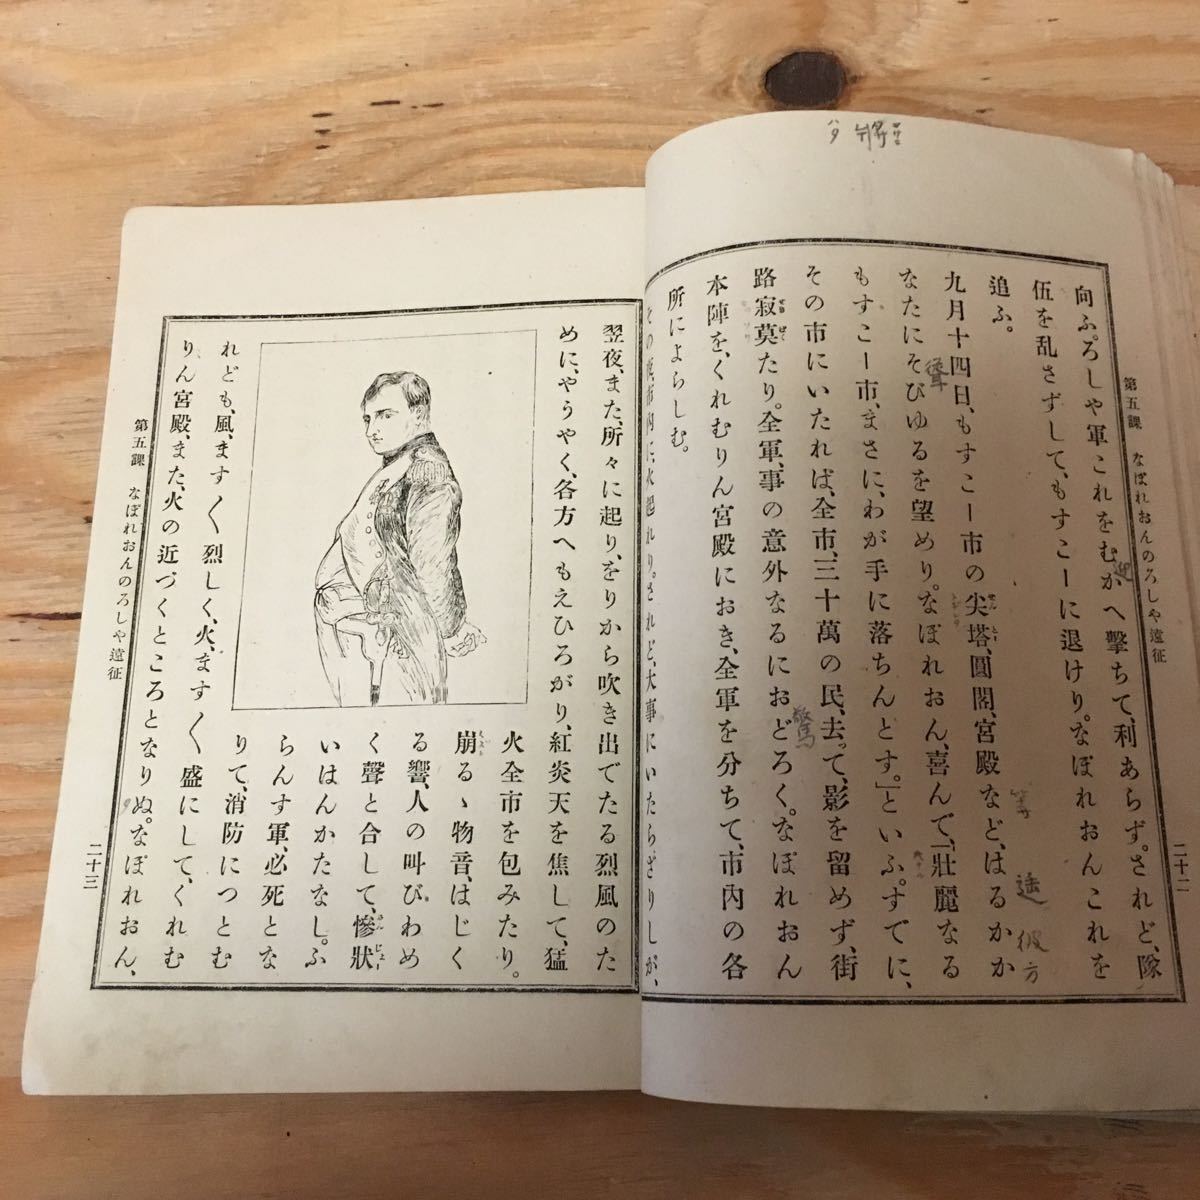 第五課　なぽれおんのろしや遠征
二十二
向ふ。ろしや軍これをむかへ擊ちて、利あらず。されど、隊
伍を乱さずして、もすこーに退けり。なぽれおんこれを
追ふ。
九月十四日、もすこー市の尖塔、圓閣、宮殿など、はるかか
なたにそびゆるを望めり。なぽれおん、喜んで、「壯麗なる
もすこー市、まさに、わが手に落ちんとす。」といふ。すでに、
その市にいたれば、全市、三十萬の民、去って、影を留めず、街
路寂莫たり。全軍、事の意外なるにおどろく。なぽれおん
本陣を、くれむりん宮殿におき、全軍を分ちて、市内の各
所によらしむ。
その夜、市内に、火起れり。されど、大事にいたらざりしが、
翌夜、また、所々に起り、をりから吹き出でたる烈風のた
めに、やうやく、各方へもえひろがり、紅炎天を焦して、猛
火全市を包みたり。
崩るゝ物音、はじく
る響、人の叫びわめ
く聲と合して、慘狀
いはんかたなし。ふ
らんす軍、必死とな
りて、消防につとむ
れども、風、ます〱烈しく、火、ます〱盛にして、くれむ
りん宮殿、また、火の近づくところとなりぬ。なぽれおん、
第五課　なぽれおんのろしや遠征
二十三
迎
聳
等
遙
彼方
驚
將